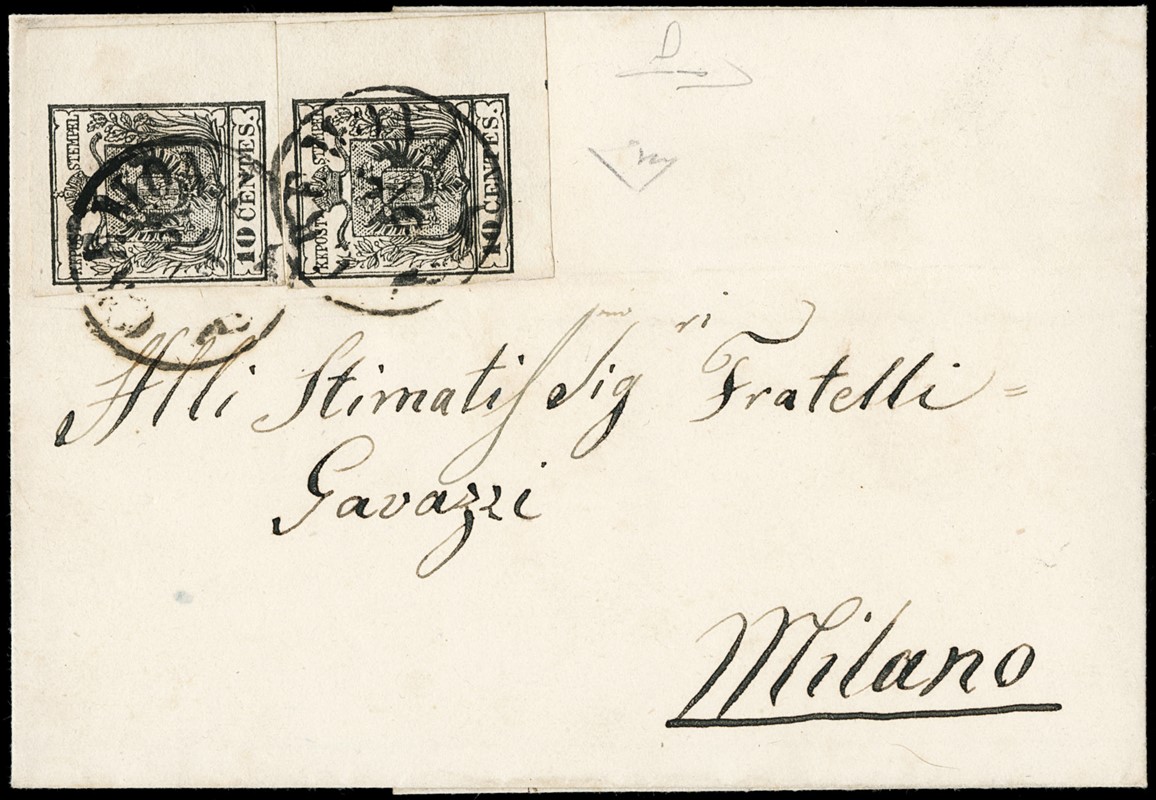 KKPOST STEMPEL
10 CENTES.
KKPOST STEMPEL
10 CENTES.
Alli Stimatis^smi Sig^ri Fratelli =
Gavazzi
Milano